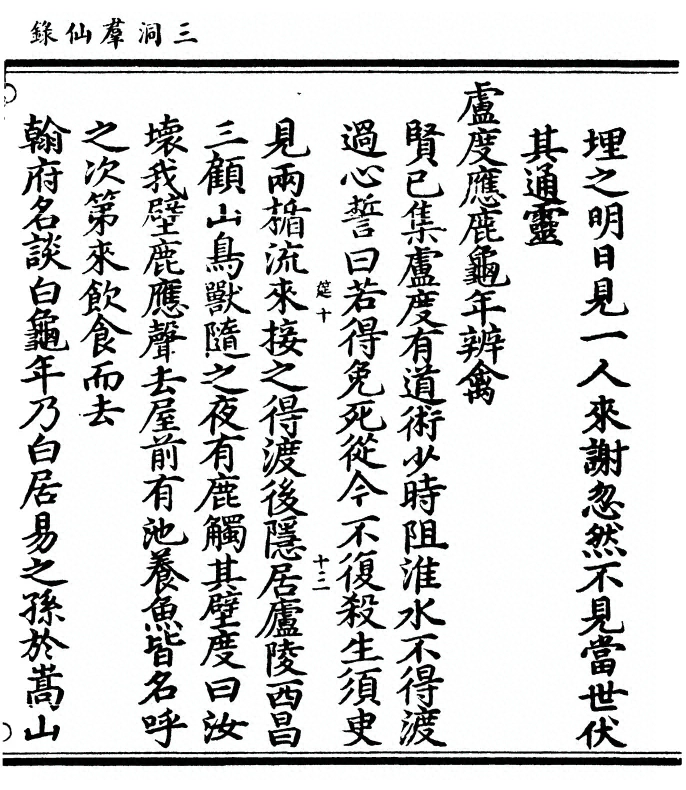 三洞羣仙錄
埋之明日見一人來謝忽然不見當世伏
其通靈
盧度應鹿龜年辨禽
賢已集盧度有道術少時阻淮水不得渡
過心誓曰若得免死從今不復殺生須臾
見兩楯流來接之得渡後隱居廬陵西昌
筵十
十三
三顧山鳥獸隨之夜有鹿觸其壁度曰汝
壞我壁鹿應聲去屋前有池養魚皆名呼
之次第來飲食而去
翰府名談白龜年乃白居易之孫於嵩山